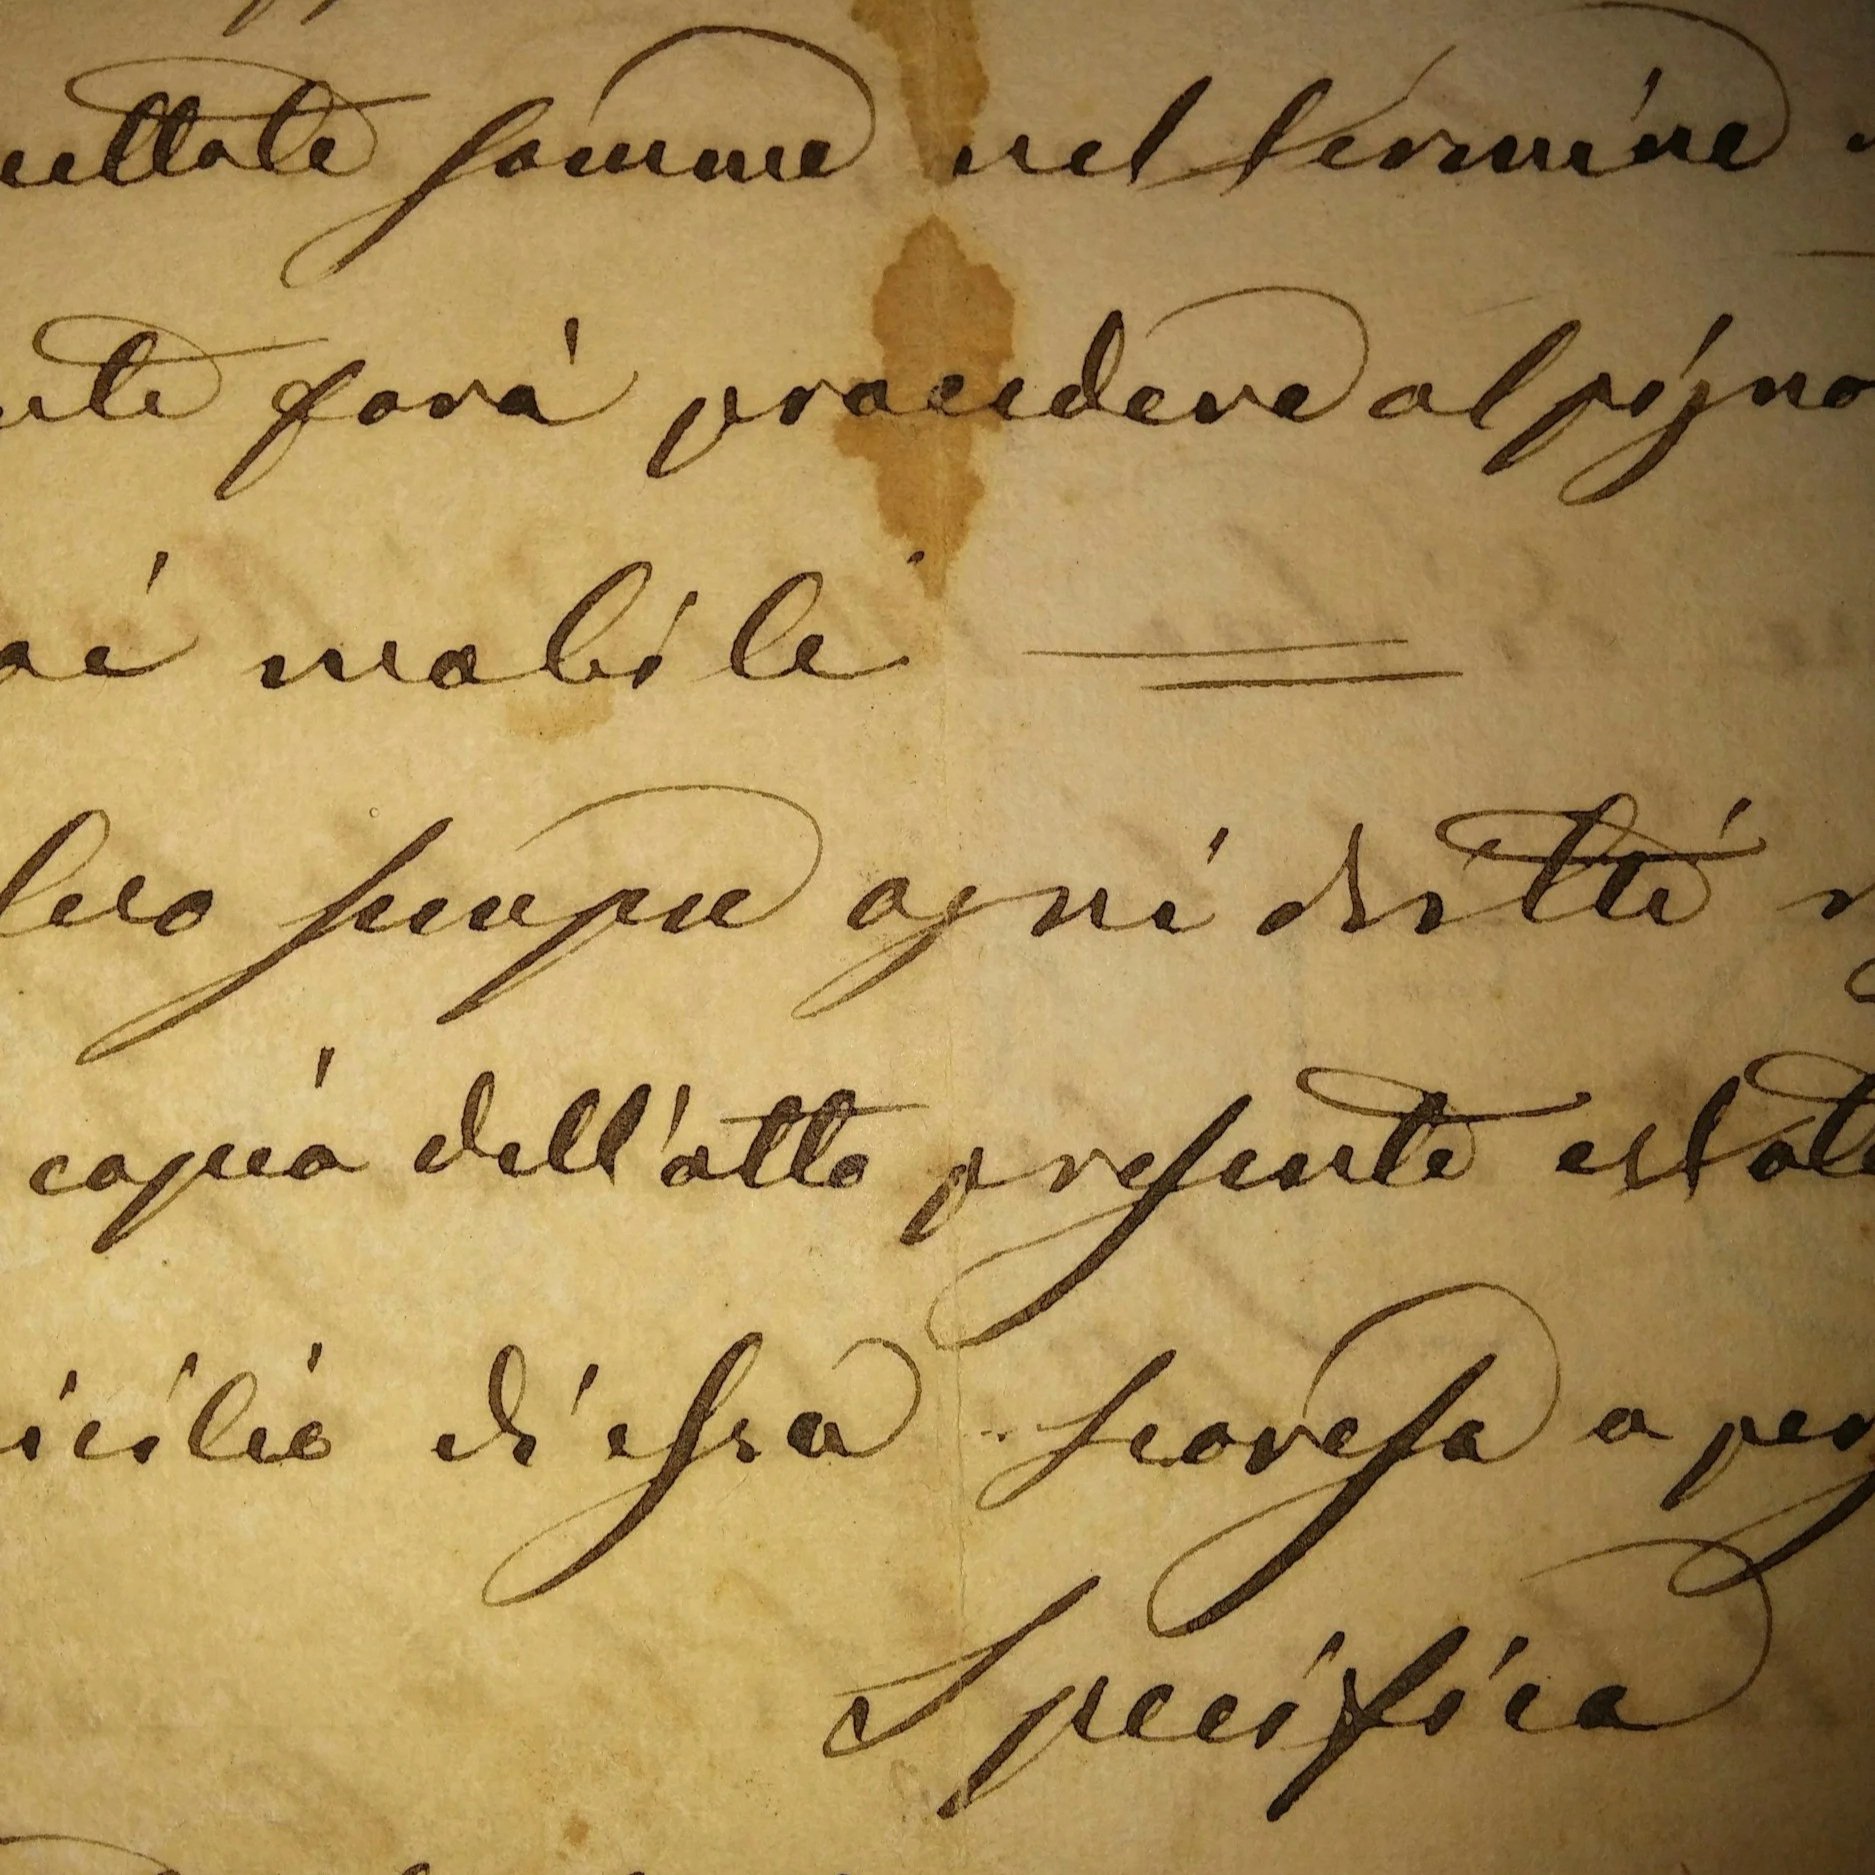 ullate somme nel termine
nte farà procedere al pigno
oi mobili
lvo sempre ogni diritti
copia dell'atto presente è stata
icilio di essa Scaresa a per
Specifica